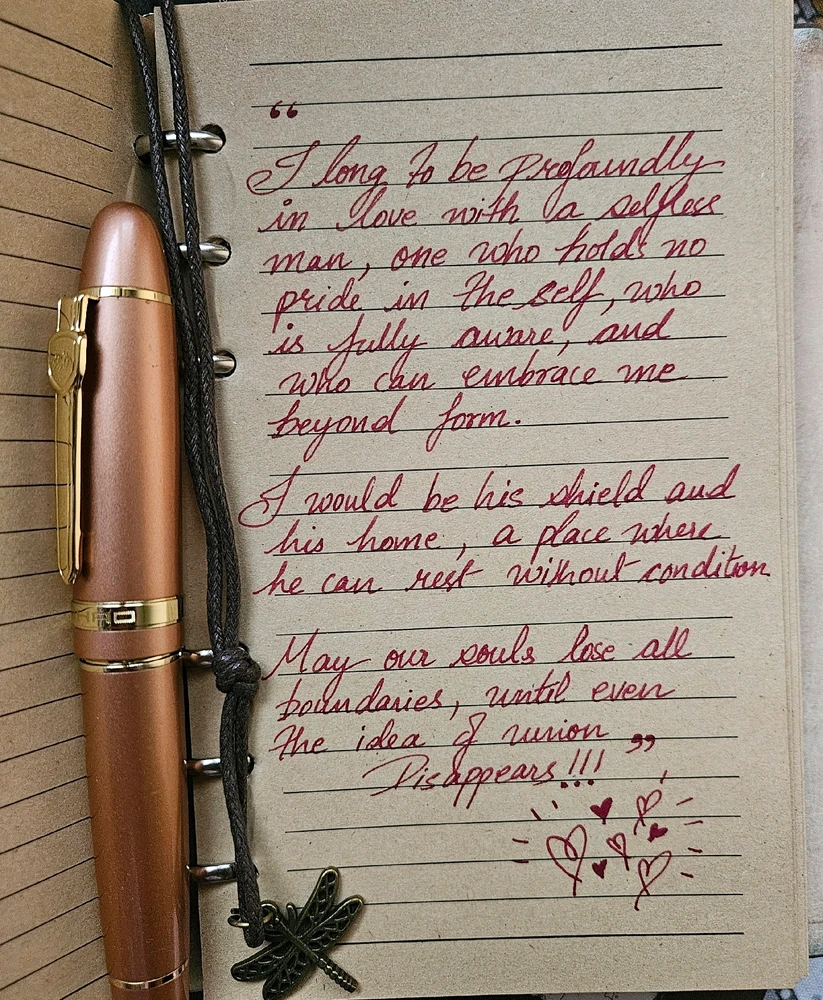 “
I long to be profoundly
in love with a selfless
man, one who holds no
pride in the self, who
is fully aware, and
who can embrace me
beyond form.
I would be his shield and
his home, a place where
he can rest without condition
May our souls lose all
boundaries, until even
the idea of union ”
Disappears!!!